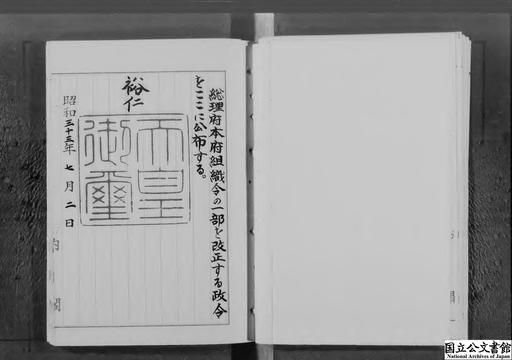 総理府本府組織令の一部を改正する政令
をここに公布する。
裕仁
天皇
御璽
昭和三十三年七月二日
内閣
国立公文書館
National Archives of Japan